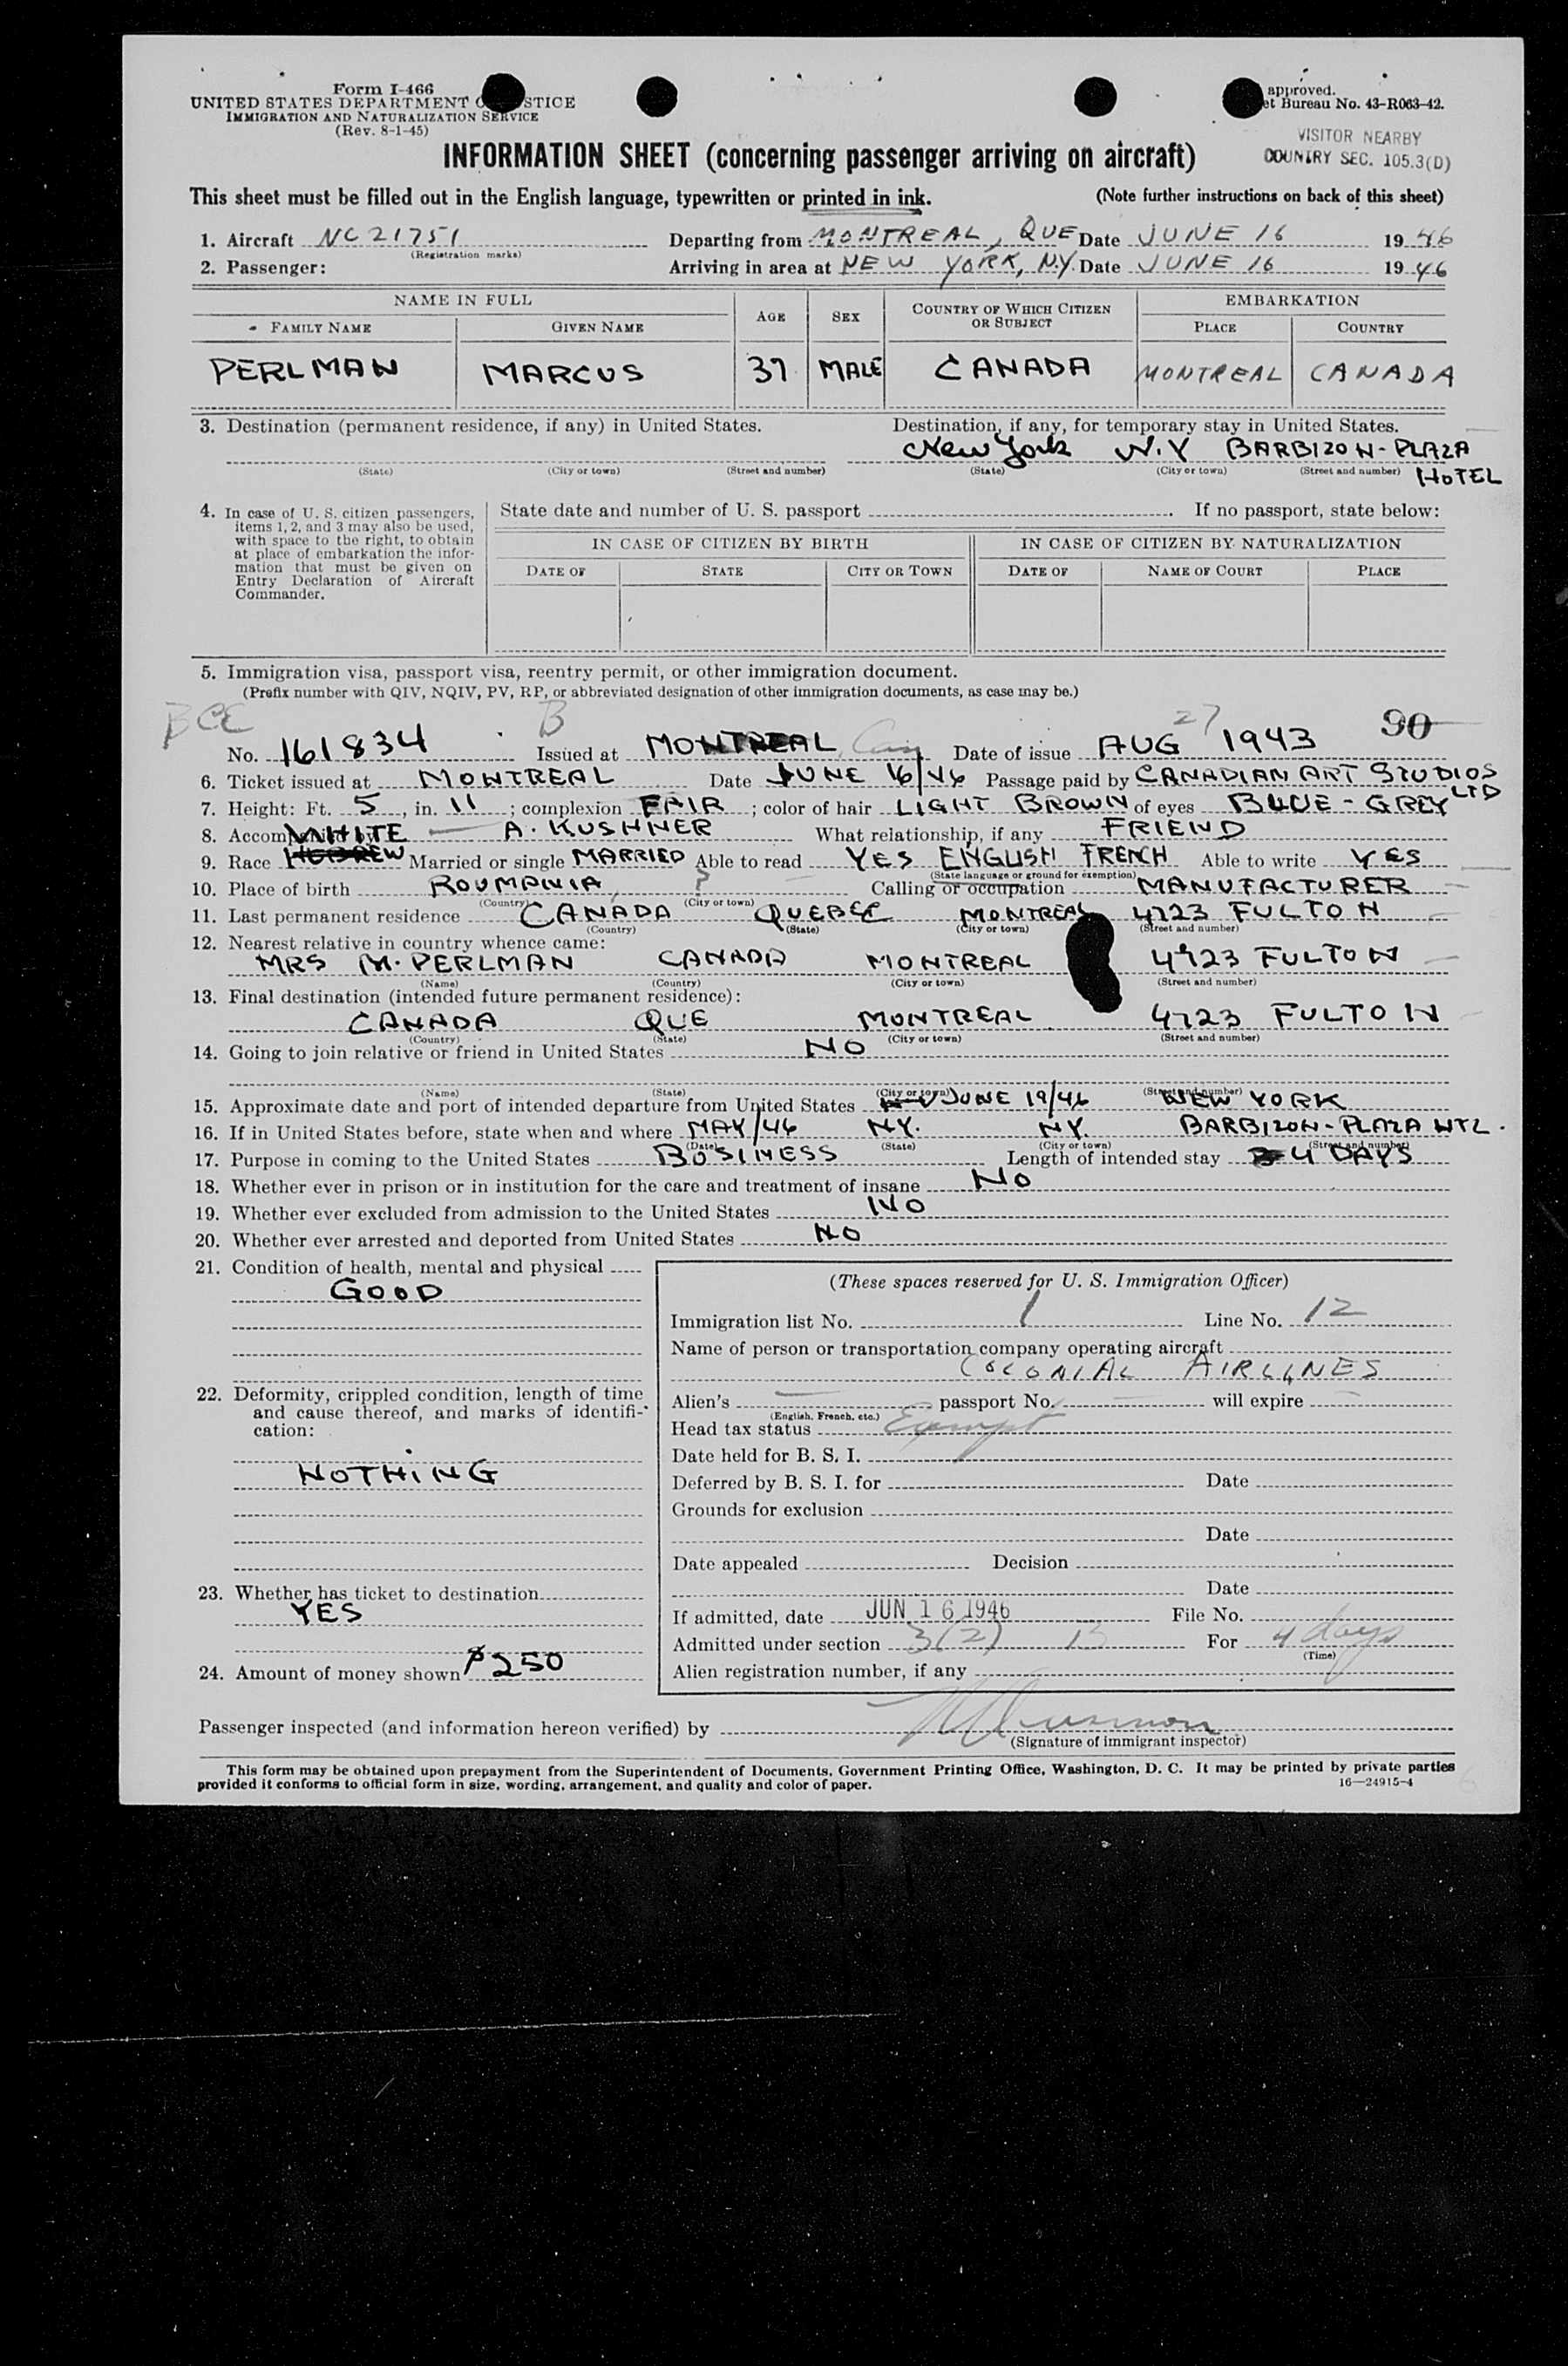 Form I-466
UNITED STATES DEPARTMENT STICE
IMMIGRATION AND NATURALIZATION SERVICE
(Rev. 8-1-45)
approved.
et Bureau No. 43-R063-42.
VISITOR NEARBY
COUNTRY SEC. 105.3(D)
INFORMATION SHEET (concerning passenger arriving on aircraft)
This sheet must be filled out in the English language, typewritten or printed in ink. (Note further instructions on back of this sheet)
1. Aircraft NC21751 Departing from MONTREAL, QUE Date JUNE 16 1946
(Registration marks)
2. Passenger: Arriving in area at NEW YORK, N.Y. Date JUNE 16 1946
NAME IN FULL AGE SEX COUNTRY OF WHICH CITIZEN OR SUBJECT EMBARKATION
FAMILY NAME GIVEN NAME PLACE COUNTRY
PERLMAN MARCUS 37 MALE CANADA MONTREAL CANADA
3. Destination (permanent residence, if any) in United States. Destination, if any, for temporary stay in United States.
New York N.Y BARBIZON-PLAZA HOTEL
(State) (City or town) (Street and number) (State) (City or town) (Street and number)
4. In case of U. S. citizen passengers, items 1, 2, and 3 may also be used, with space to the right, to obtain at place of embarkation the information that must be given on Entry Declaration of Aircraft Commander.
State date and number of U. S. passport . If no passport, state below:
IN CASE OF CITIZEN BY BIRTH IN CASE OF CITIZEN BY NATURALIZATION
DATE OF STATE CITY OR TOWN DATE OF NAME OF COURT PLACE
5. Immigration visa, passport visa, reentry permit, or other immigration document.
(Prefix number with QIV, NQIV, PV, RP, or abbreviated designation of other immigration documents, as case may be.)
BCC B 27 90
No. 161834 Issued at MONTREAL Date of issue AUG 1943
6. Ticket issued at MONTREAL Date JUNE 16/46 Passage paid by CANADIAN ART STUDIOS LTD
7. Height: Ft. 5, in. 11; complexion FAIR; color of hair LIGHT BROWN of eyes BLUE-GREY
8. Accompanied by A. KUSHNER What relationship, if any FRIEND
WHITE
9. Race HEBREW Married or single MARRIED Able to read YES ENGLISH FRENCH Able to write YES
(State language or ground for exemption)
10. Place of birth ROUMANIA ? Calling or occupation MANUFACTURER
(Country) (City or town)
11. Last permanent residence CANADA QUEBEC MONTREAL 4723 FULTON
(Country) (State) (City or town) (Street and number)
12. Nearest relative in country whence came:
MRS M. PERLMAN CANADA MONTREAL 4723 FULTON
(Name) (Country) (City or town) (Street and number)
13. Final destination (intended future permanent residence):
CANADA QUE MONTREAL 4723 FULTON
(Country) (State) (City or town) (Street and number)
14. Going to join relative or friend in United States NO
(Name) (State) (City or town) (Street and number)
15. Approximate date and port of intended departure from United States JUNE 19/46 NEW YORK
16. If in United States before, state when and where MAY/46 N.Y. N.Y. BARBIZON-PLAZA HTL.
(Date) (State) (City or town) (Street and number)
17. Purpose in coming to the United States BUSINESS Length of intended stay 4 DAYS
18. Whether ever in prison or in institution for the care and treatment of insane NO
19. Whether ever excluded from admission to the United States NO
20. Whether ever arrested and deported from United States NO
21. Condition of health, mental and physical
GOOD
22. Deformity, crippled condition, length of time and cause thereof, and marks of identification:
NOTHING
23. Whether has ticket to destination
YES
24. Amount of money shown $250
(These spaces reserved for U. S. Immigration Officer)
Immigration list No. 1 Line No. 12
Name of person or transportation company operating aircraft
COLONIAL AIRLINES
Alien's passport No. will expire
(English, French, etc.)
Head tax status Exempt
Date held for B. S. I.
Deferred by B. S. I. for Date
Grounds for exclusion
Date
Date appealed Decision
Date
If admitted, date JUN 16 1946 File No.
Admitted under section 3(2) 13 For 4 days
(Time)
Alien registration number, if any
Passenger inspected (and information hereon verified) by
(Signature of immigrant inspector)
This form may be obtained upon prepayment from the Superintendent of Documents, Government Printing Office, Washington, D. C. It may be printed by private parties
provided it conforms to official form in size, wording, arrangement, and quality and color of paper. 16—24915-4